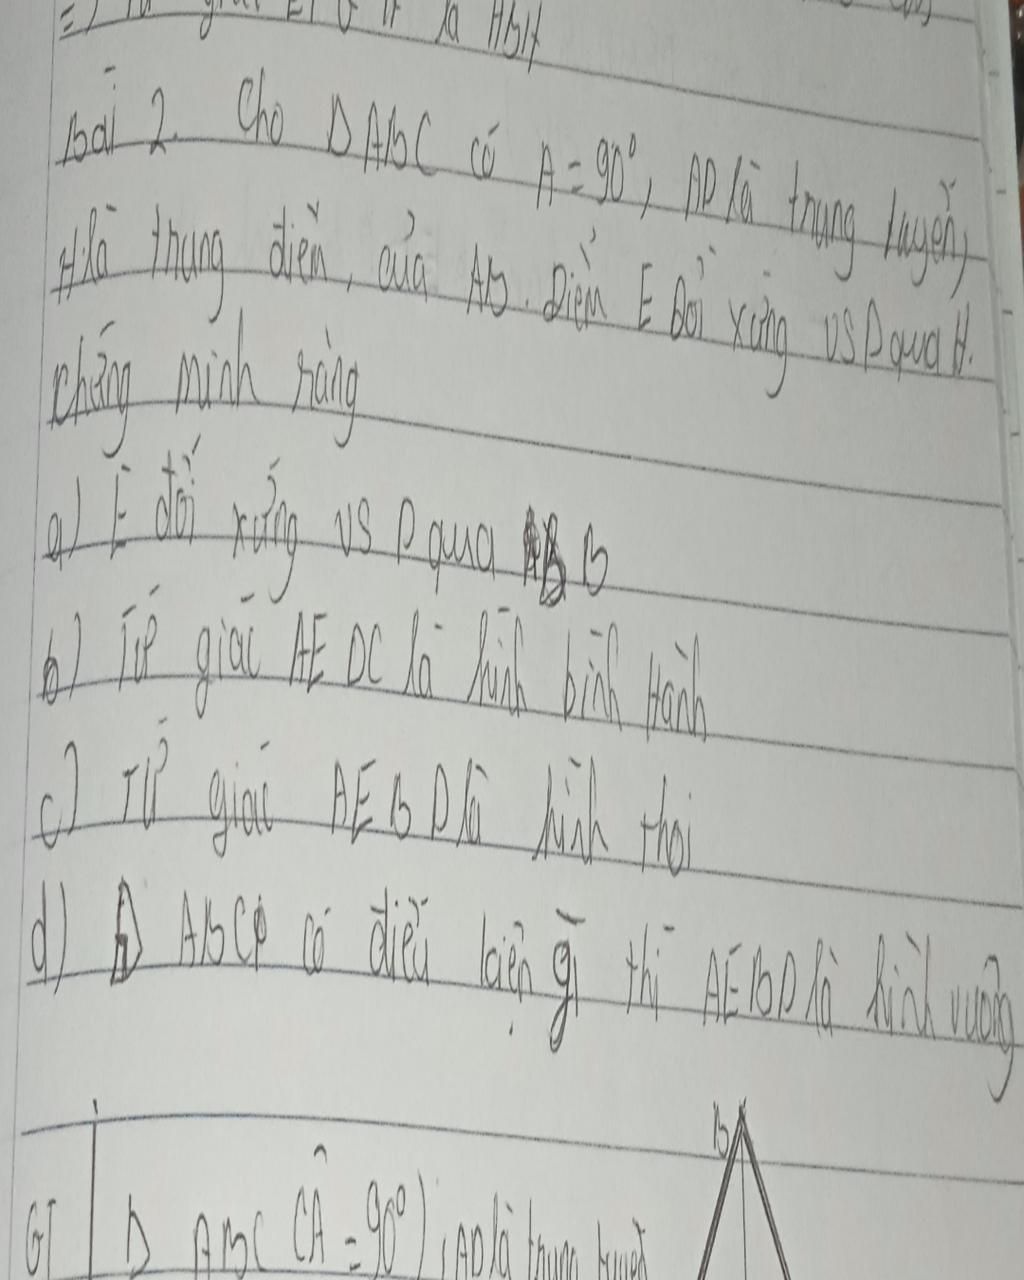 là HBH
Bài 2. Cho Δ ABC có A = 90°, AD là trung tuyến,
H là trung điểm của AB. Điểm E Đối xứng vs D qua H.
chứng minh rằng
a) E đối xứng vs D qua B
b) Tứ giác AEDC là hình bình Hành
c) Tứ giác AEBD là hình thoi
d) Δ ABC có điều kiện gì thì AEBD là hình vuông
B
GT Δ ABC (Â = 90°), AD là trung tuyến